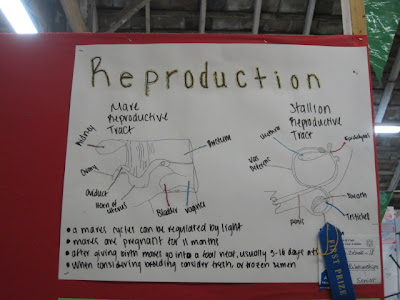 Reproduction
Mare
Reproductive
Tract
Stallion
Reproductive
Tract
Kidney
Rectum
Ovary
Oviduct
Horn of
uterus
Bladder
Vagina
Urethra
Vas
Deferens
Penis
Sheath
Testicles
• a mares cycles can be regulated by light
• mares are pregnant for 11 months
• after giving birth mares go into a foal heat, usually 3-16 days
• When considering breeding consider fresh, or frozen semen
FIRST PRIZE
Senior